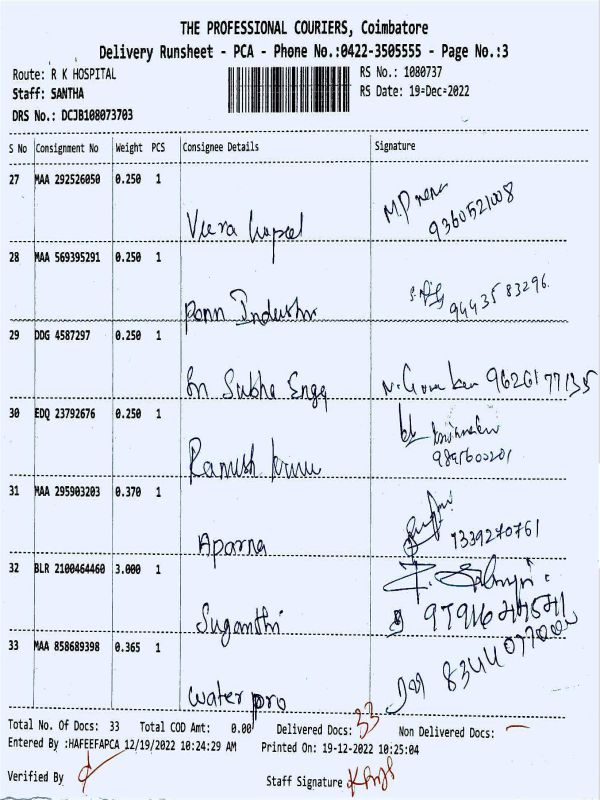 THE PROFESSIONAL COURIERS, Coimbatore
Delivery Runsheet - PCA - Phone No.:0422-3505555 - Page No.:3
Route: R K HOSPITAL
RS No.: 1080737
Staff: SANTHA
RS Date: 19-Dec-2022
DRS No.: DCJB108073703
S No Consignment No Weight PCS Consignee Details Signature
27 MAA 292526050 0.250 1
Veera
9360521008
28 MAA 569395291 0.250 1
Ponn
9443583296
29 DDG 4587297 0.250 1
Sri Subha Engg
9626177135
30 EDQ 23792676 0.250 1
Ramesh kumar
31 MAA 295903203 0.370 1
Aparna
7339270761
32 BLR 2100464460 3.000 1
Suganthi
33 MAA 858689398 0.365 1
water pro
Total No. Of Docs: 33 Total COD Amt: 0.00 Delivered Docs: 33 Non Delivered Docs: —
Entered By :HAFEEFAPCA 12/19/2022 10:24:29 AM Printed On: 19-12-2022 10:25:04
Verified By
Staff Signature